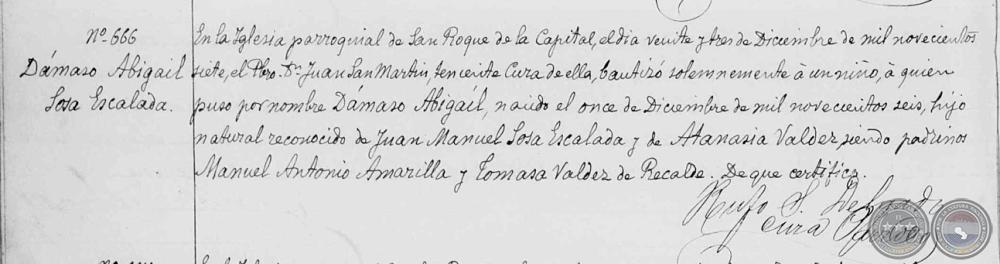 Nº 666
Dámaso Abigail
Sosa Escalada.
En la Iglesia parroquial de San Roque de la Capital, el dia veinte y tres de Diciembre de mil novecientos
siete, el Pbro. Dn. Juan San Martin, teniente Cura de ella, bautizó solemnemente à un niño, à quien
puso por nombre Dámaso Abigaíl, nacido el once de Diciembre de mil novecientos seis, hijo
natural reconocido de Juan Manuel Sosa Escalada y de Atanasia Valdez, siendo padrinos
Manuel Antonio Amarilla y Tomasa Valdez de Recalde. De que certifico.
Rufo S.
Cura